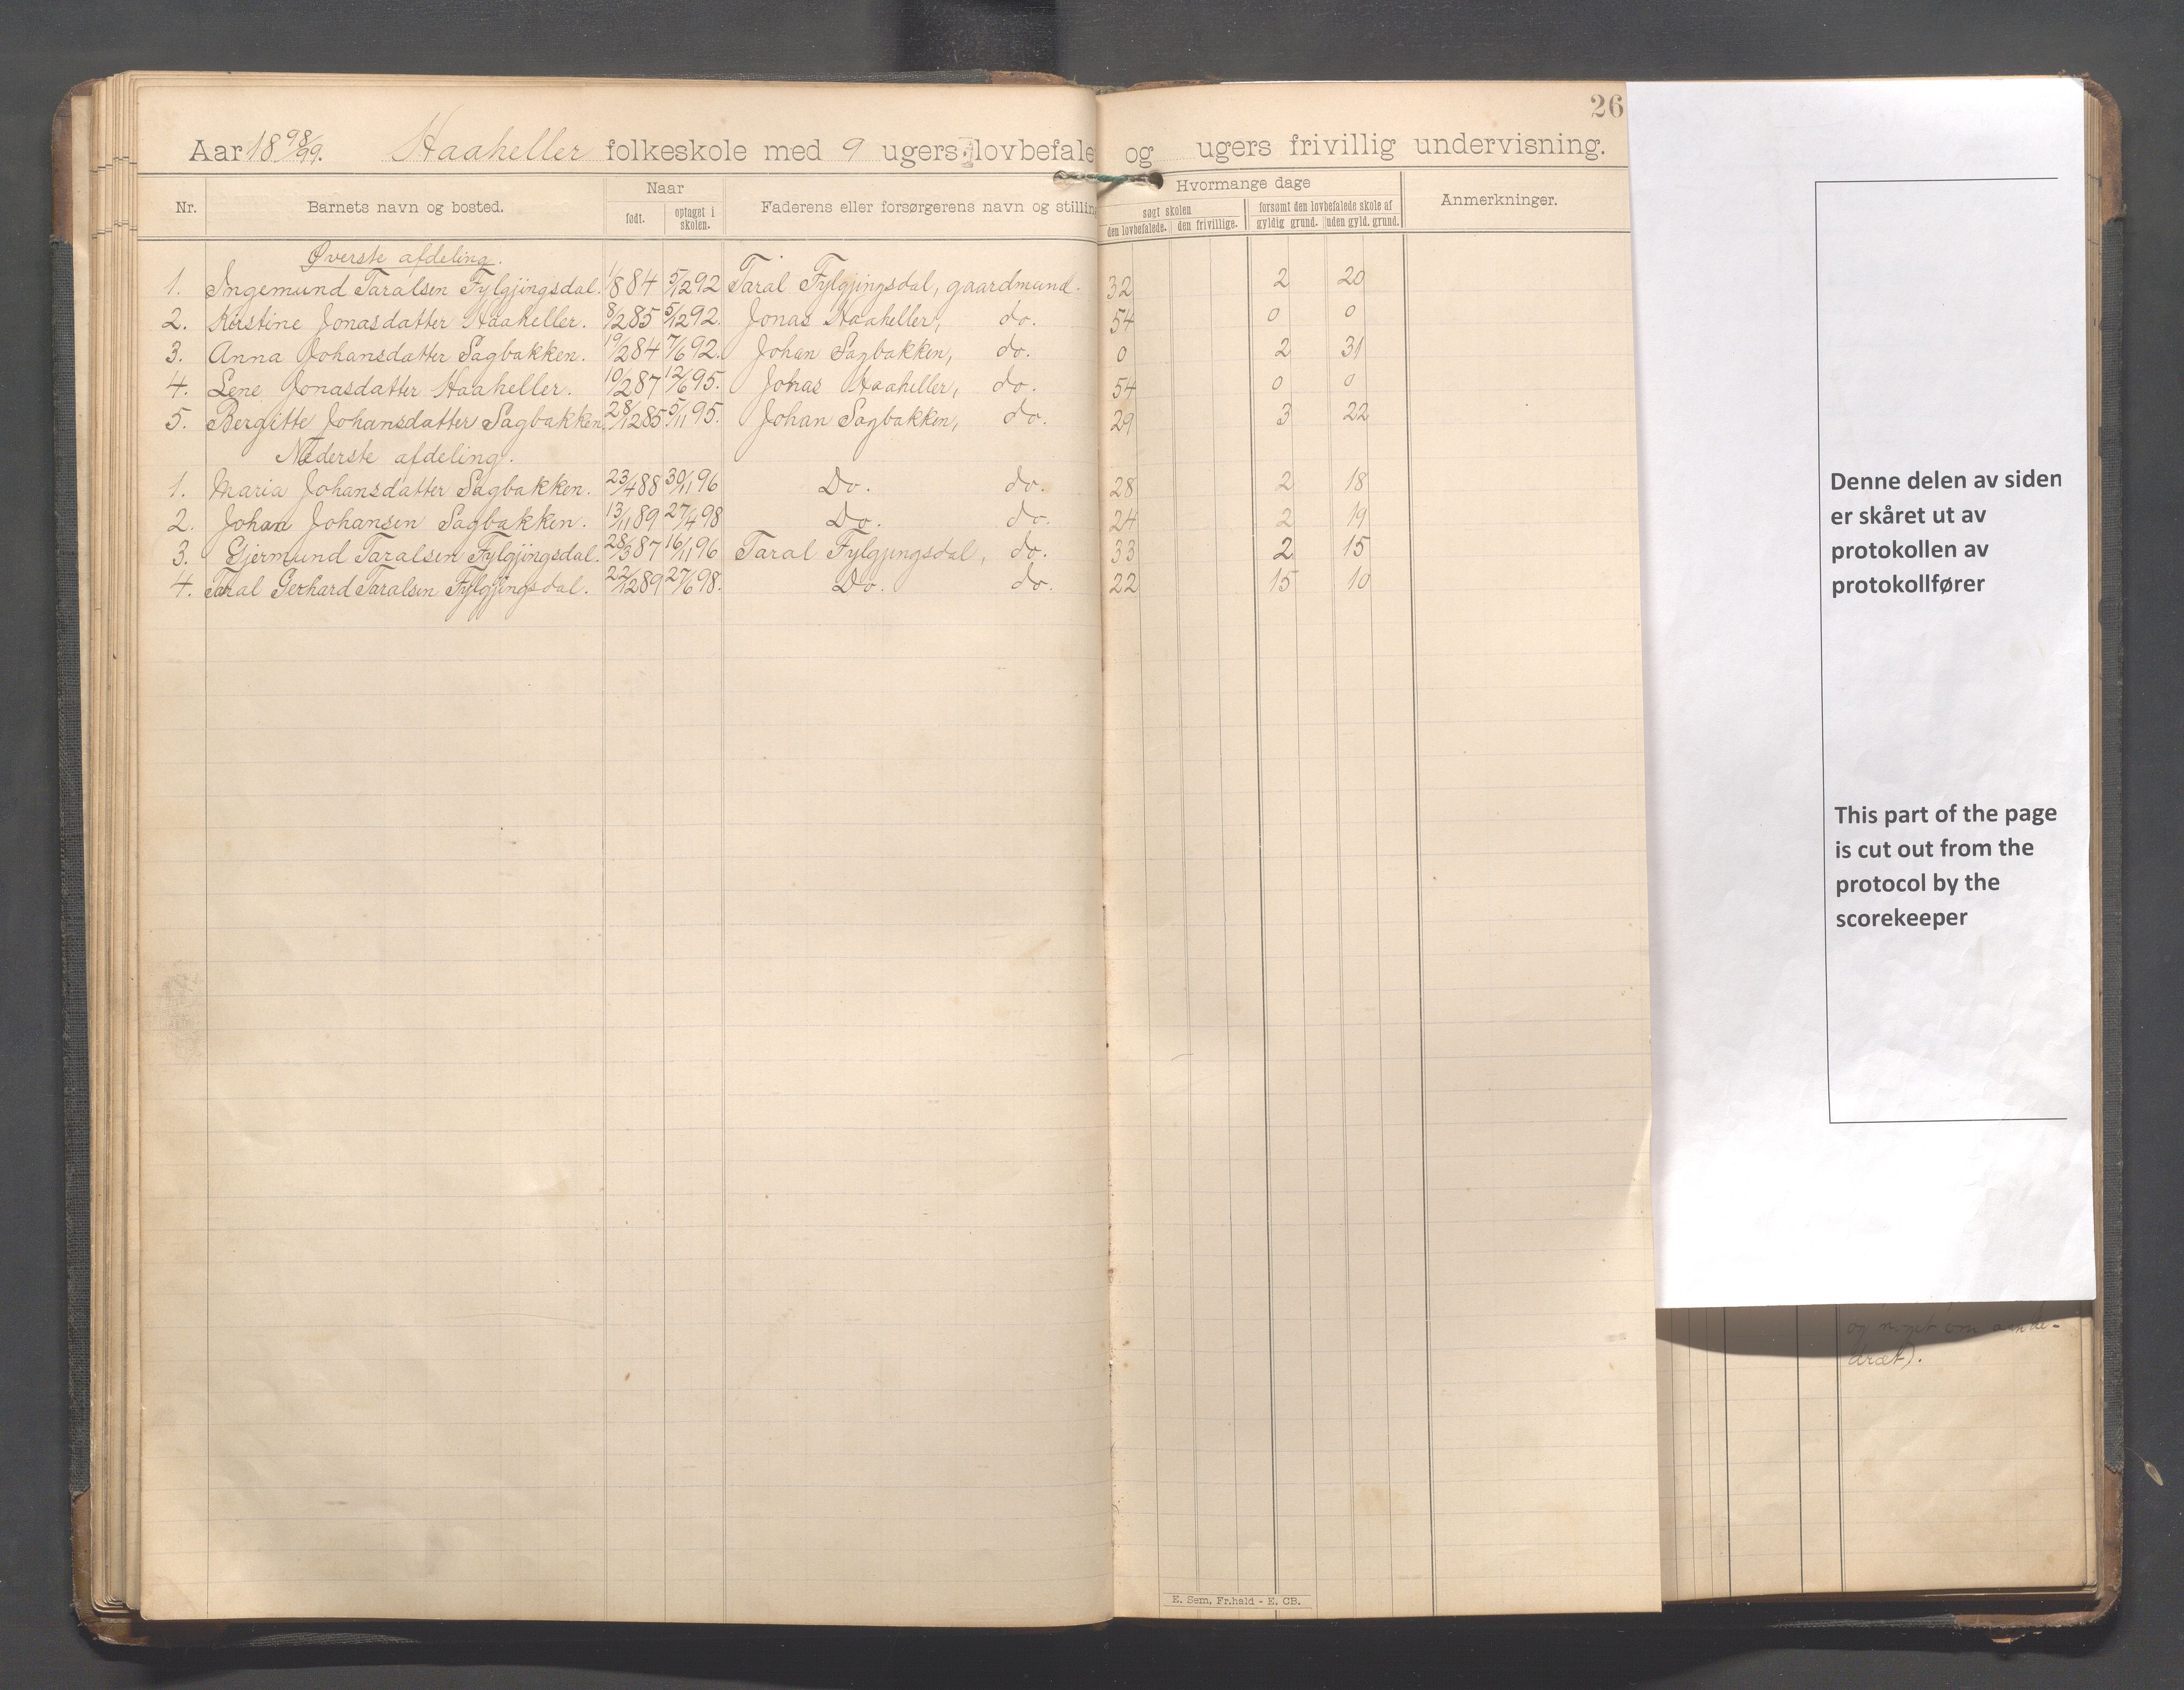 26
Aar 18 98/99. Haaheller folkeskole med 9 ugers lovbefale og ugers frivillig undervisning.
Nr. Barnets navn og bosted. Naar født. optaget i skolen. Faderens eller forsørgerens navn og stillin Hvormange dage søgt skolen den lovbefalede. den frivillige. forsømt den lovbefalede skole af gyldig grund. uden gyld. grund. Anmerkninger.
Øverste afdeling.
1. Ingemund Taralsen Fylgjingsdal. 1/8 84 5/12 92 Taral Fylgjingsdal, gaardmand. 32 2 20
2. Kirstine Jonasdatter Haaheller. 8/2 85 5/12 92. Jonas Haaheller, do. 54 0 0
3. Anna Johansdatter Sagbakken. 19/2 84 7/6 92. Johan Sagbakken, do. 0 2 31
4. Lene Jonasdatter Haaheller. 10/2 87 12/6 95. Jonas Haaheller, do. 54 0 0
5. Bergitte Johansdatter Sagbakken. 28/12 85 5/11 95. Johan Sagbakken, do. 29 3 22
Nederste afdeling.
1. Maria Johansdatter Sagbakken. 23/4 88 30/11 96 Do. do. 28 2 18
2. Johan Johansen Sagbakken. 13/11 89 27/4 98 Do. do. 24 2 19
3. Gjermund Taralsen Fylgjingsdal. 28/3 87 16/11 96 Taral Fylgjingsdal, do. 33 2 15
4. Taral Gerhard Taralsen Fylgjingsdal. 22/12 89 27/6 98. Do. do. 22 15 10
E. Sem, Fr.hald - E. CB.
Denne delen av siden
er skåret ut av
protokollen av
protokollfører
This part of the page
is cut out from the
protocol by the
scorekeeper
og noget om aande-
dræt).